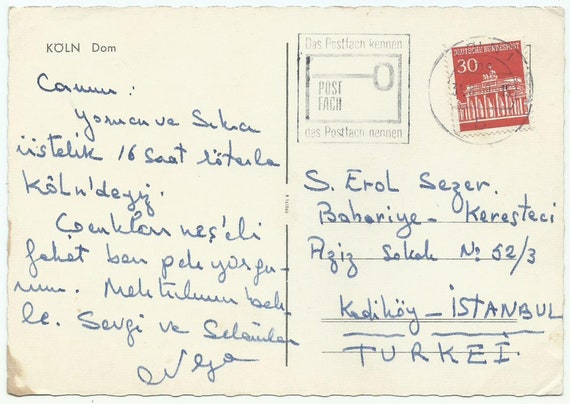 KÖLN Dom
Canım :
Yorucu ve Sıkıcı
üstelik 16 saat röterla
Köln'deyiz.
Çocukları neş'eli
fakat ben pek yorgu-
num. Mektubumu bek-
le. Sevgi ve Selâmlar
Das Postfach kennen
POST
FACH
das Postfach nennen
DEUTSCHE BUNDESPOST
30
S. Erol Sezer.
Bahariye - Keresteci
Aziz Sokak No 52/3
Kadıköy - İSTANBUL
TURKEİ